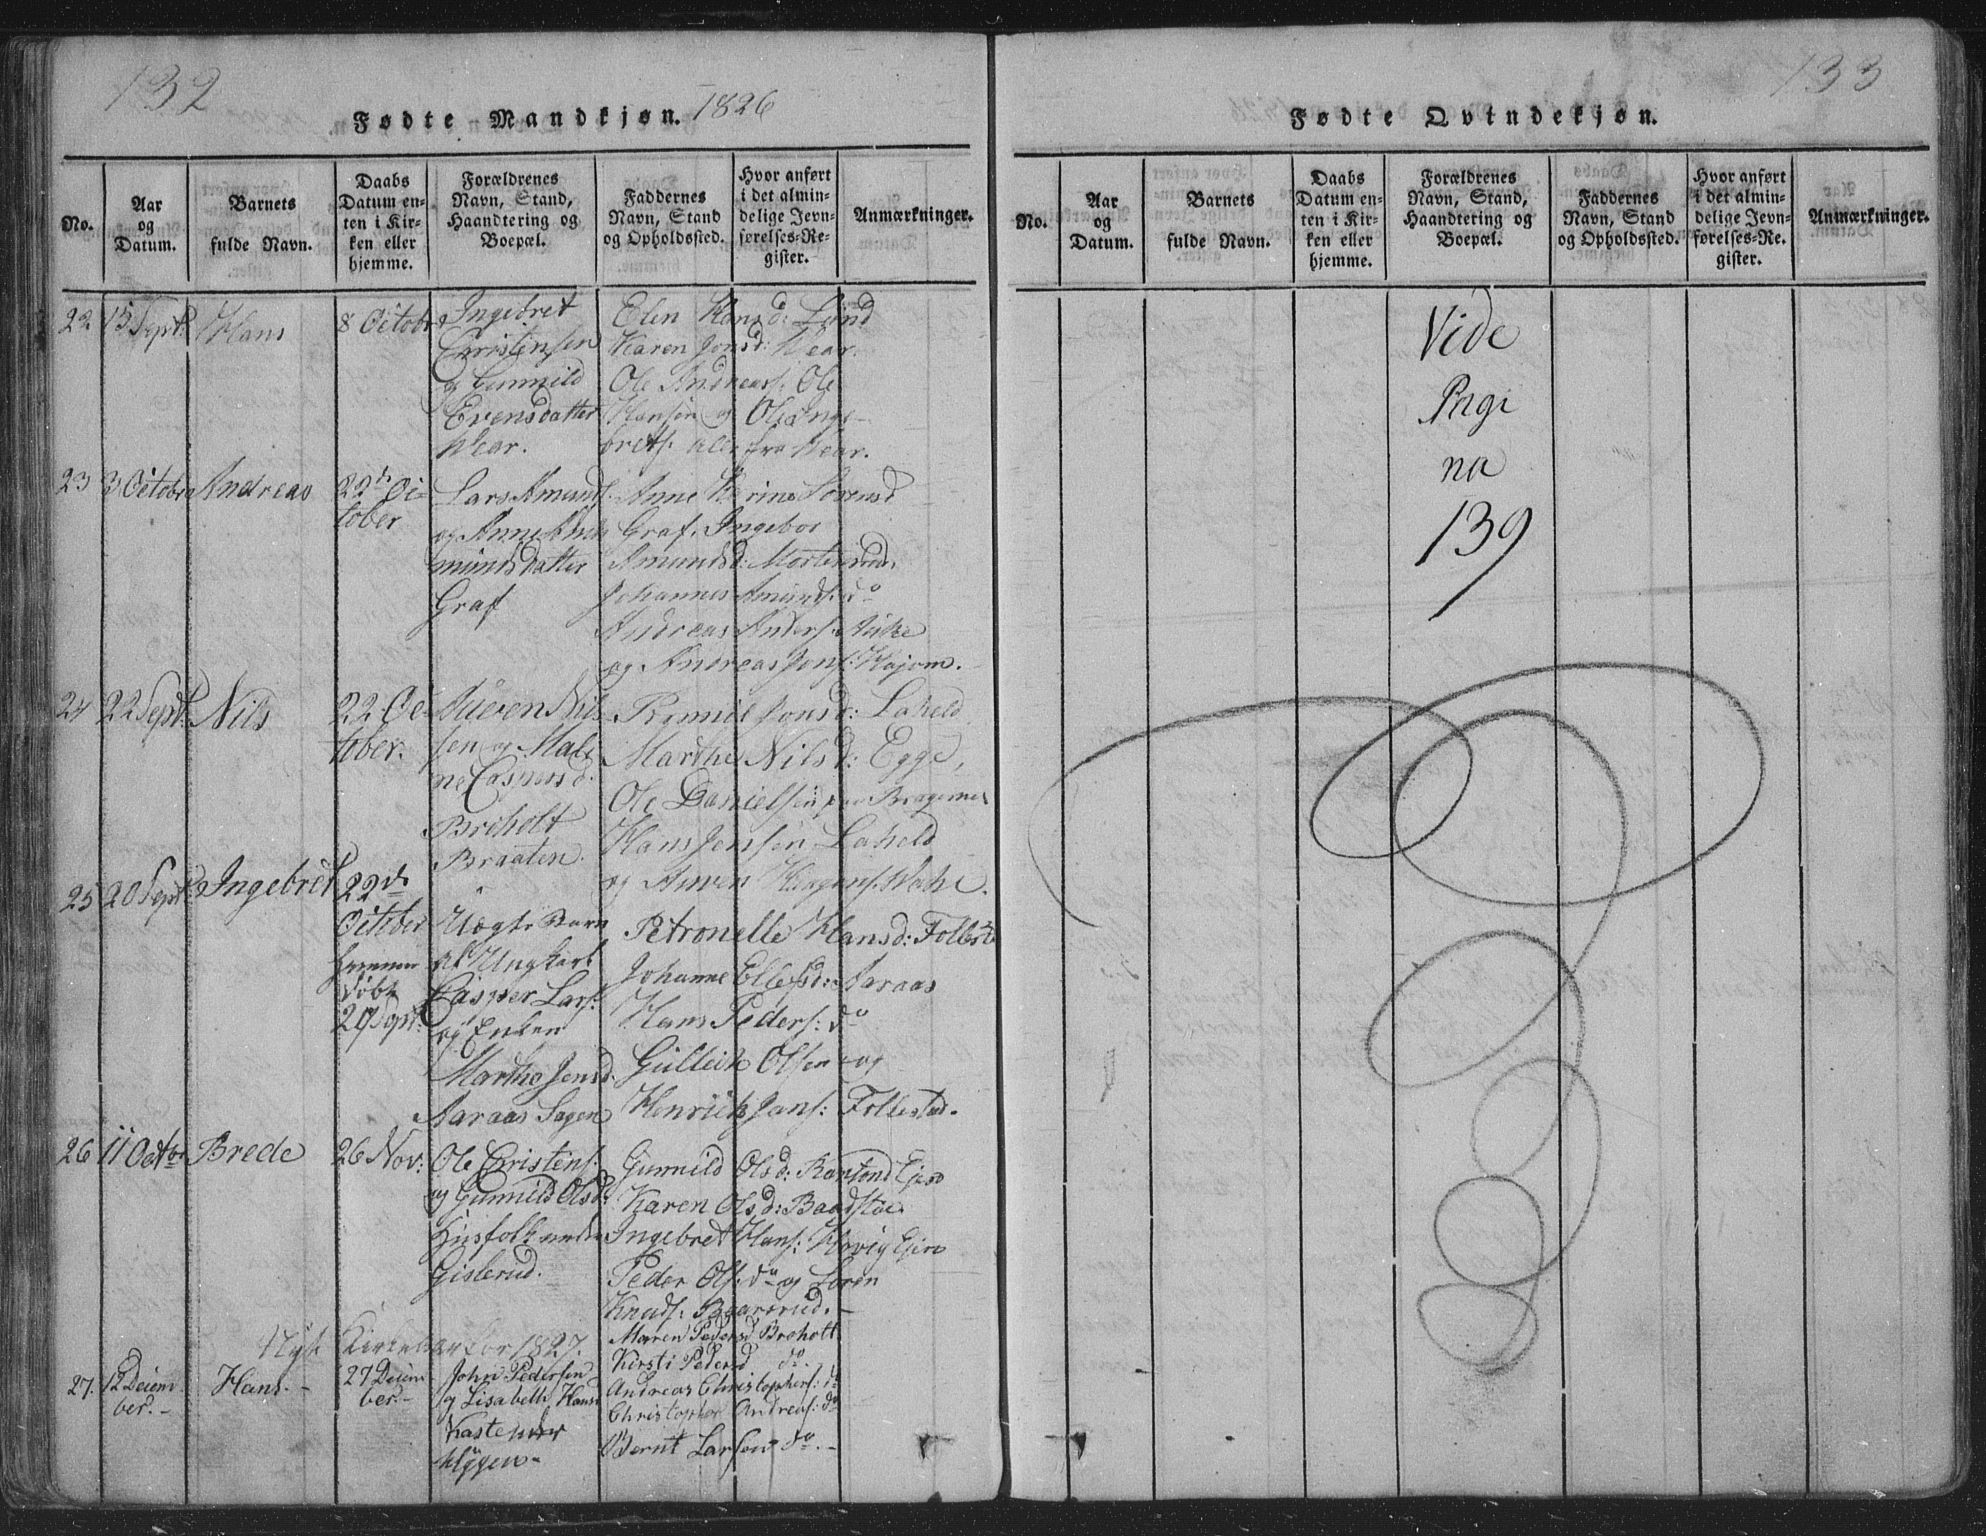 132
Fødte Mandkjøn. 1826
No.
Aar og Datum.
Barnets fulde Navn.
Daabs Datum enten i Kirken eller hjemme.
Forældrenes Navn, Stand, Haandtering og Boepæl.
Faddernes Navn, Stand og Opholdssted.
Hvor anført i det almindelige Jevnførelses-Register.
Anmærkninger.
22 15 Sept: Hans 8 October
Ingebret
Christensen
og Gunnild
Evensdatter
Wear.
Elen Hansd: Lund
Karen Jonsd: Wear.
Ole Andreas: Ole
Hansen og Ole Inge-
brets: alle fra Wear.
23 3 October Andreas 22de Oc-
tober
Lars Amunds:
og Anne
mundsdatter
Graf
Anne Karine Sørensd
Graf, Ingebor
Amundsd: Mortensrud,
Johannes Amunds: do
Andreas Anders:
og Andreas Jons:
24 22 Sept: Nils 22 Oc-
tober.
Nils
sen og Male
ne Caspersd.
Breholt
Braaten.
Jonsd: Laheld
Marthe Nilsd: Egge,
Ole Danielsen paa Bragernes
Hans Jensen Laheld
og
25 20 Sept: Ingebret 22de
October
hjemme
døbt
29 Sept:
Uægte Barn
af Ungkarl
Casper Lars:
og Enken
Marthe Jensd.
Aaraas Sagen
Petronelle Hansd: Follestd
Johanne Ellefsd: Aaraas
Hans Peders: do
Gulleik Olsen og
Henrik Jans: Follestad.
26 11 Octbr Brede 26 Nov:
Ole Cristens:
og Gunnild Olsd:
Husfolk under
Gislerud.
Gunnild Olsd:
Karen Olsd: Baadstøe.
Ingebret Hans:
Peder Ols: do og Søren
Knuds:
Nyt Kirkeaar for 1827.
27. 12 Decem-
ber.- Hans.- 27 Decem-
ber.-
John Pedersen
og Lisabeth Hansd
Kasteruds
Maren Pedersd Breholt
Kirsti Pedersd do.
Andreas Christophers: do
Christopher Andreas: do
Bernt Larsen do.-
133
Fødte Qvindekjøn.
No.
Aar og Datum.
Barnets fulde Navn.
Daabs Datum enten i Kirken eller hjemme.
Forældrenes Navn, Stand, Haandtering og Boepæl.
Faddernes Navn, Stand og Opholdssted.
Hvor anført i det almindelige Jevnførelses-Register.
Anmærkninger.
Vide
Pagi
na
139